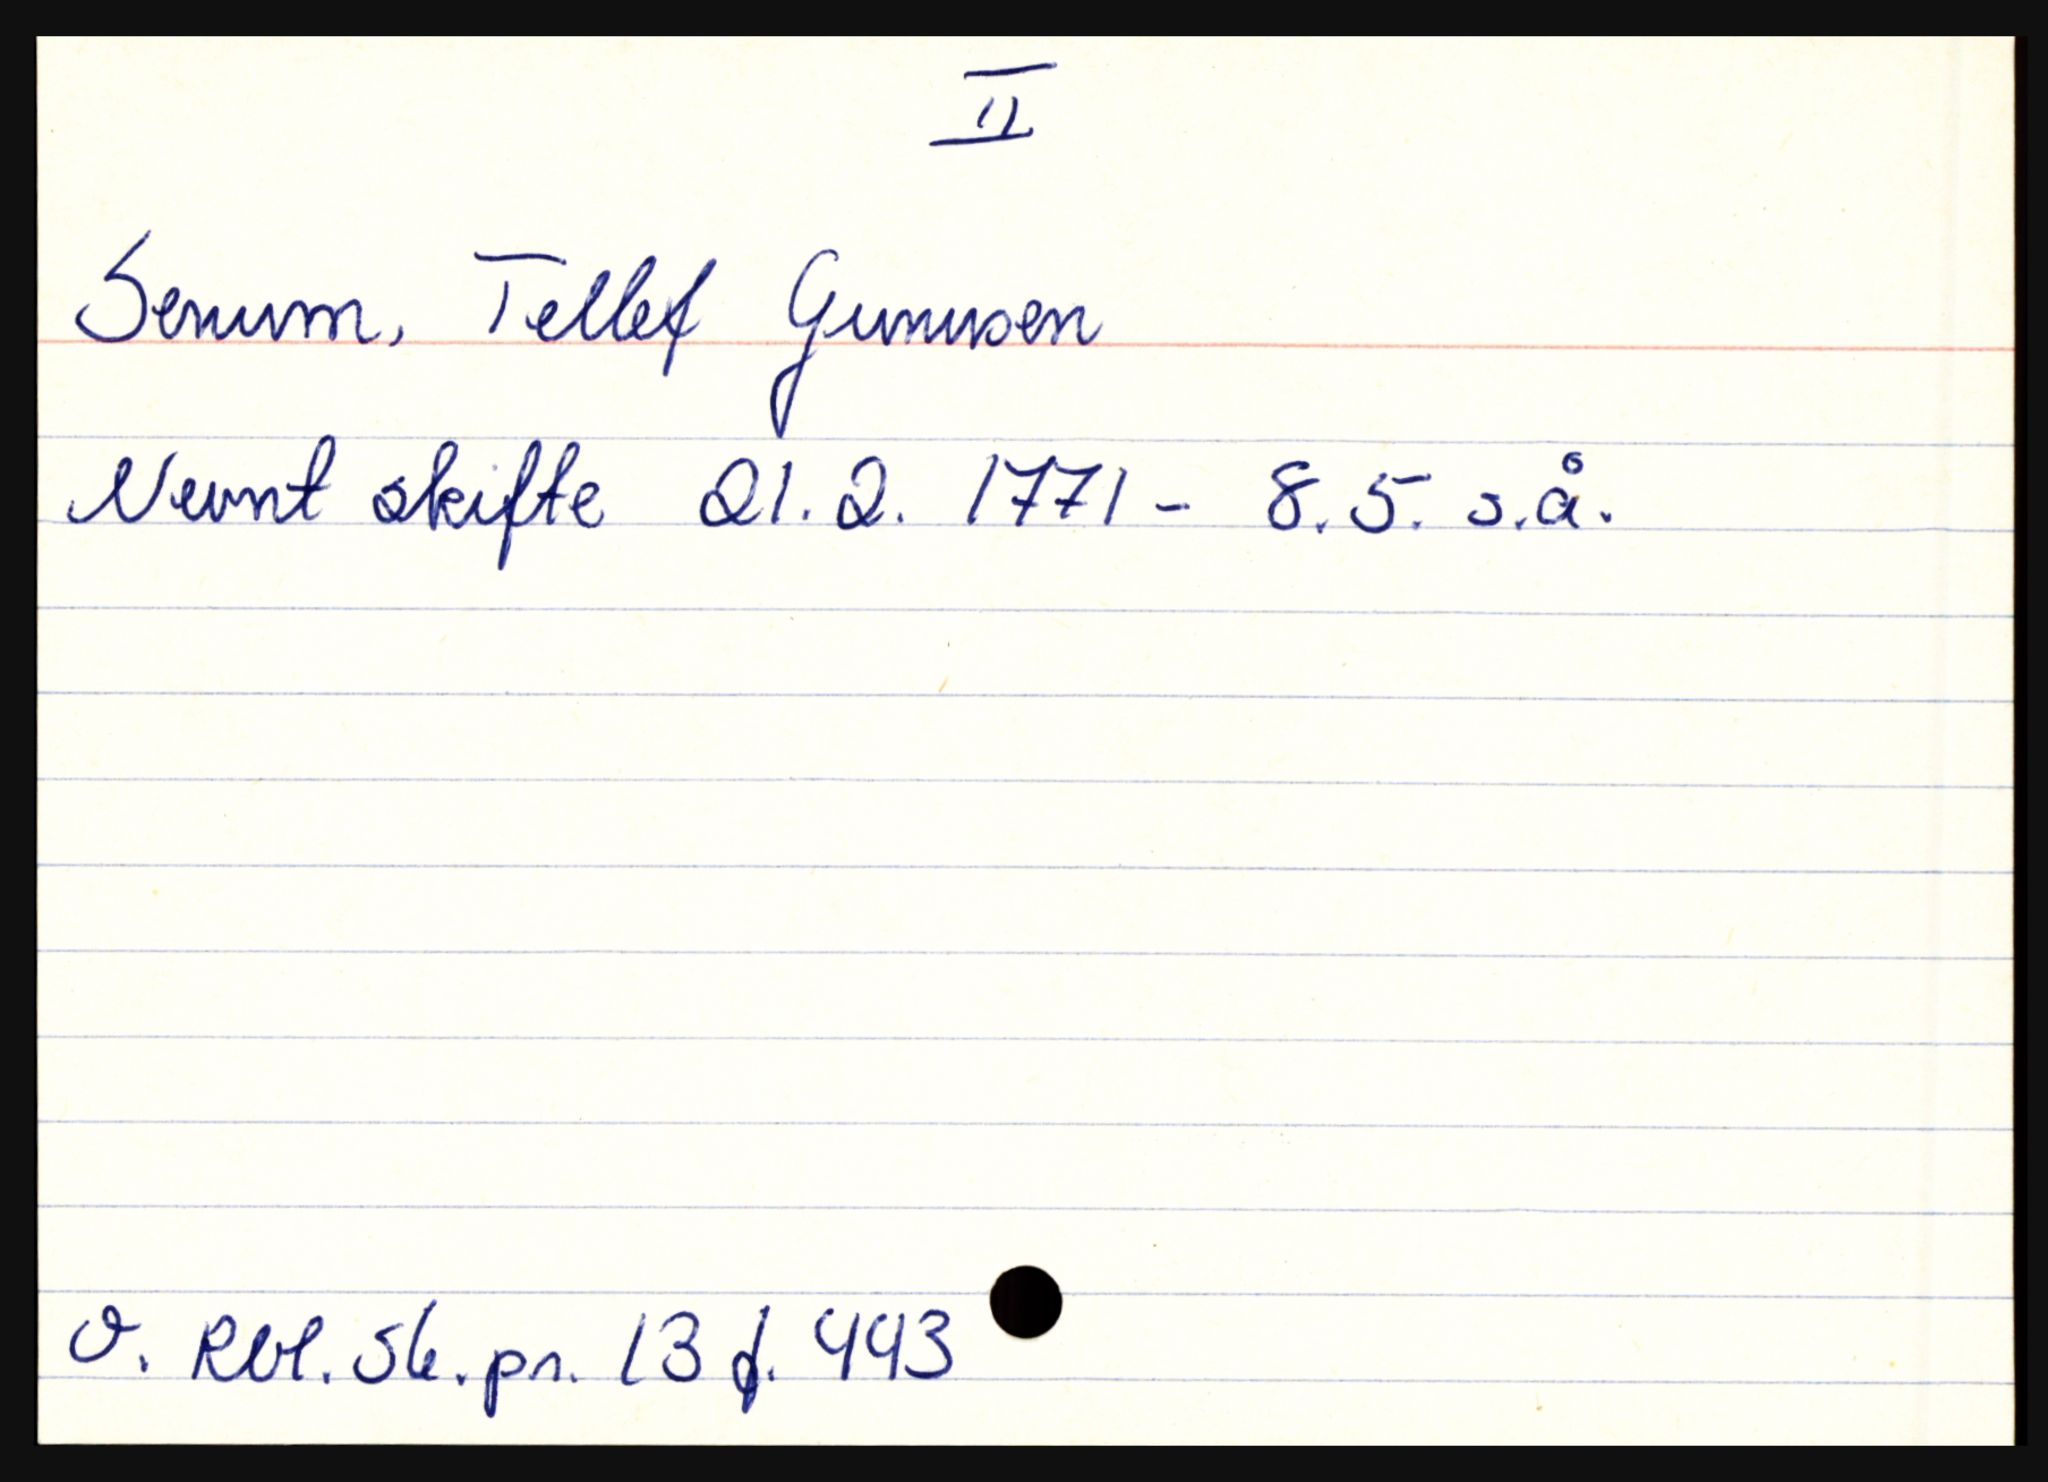 II
Senum, Tellef Gunnusen
Nevnt skifte 21. 2. 1771 - 8. 5. s.å.
v. Rbl. Sk. pr. 13 f. 443